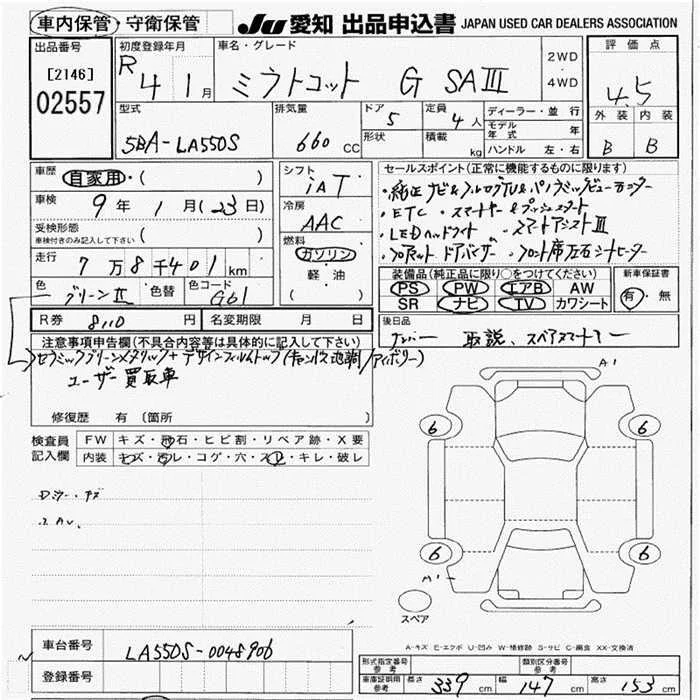 車内保管・守衛保管 JU 愛知 出品申込書 JAPAN USED CAR DEALERS ASSOCIATION
出品番号 初度登録年月 車名・グレード 評価点
[2146] R 4 1月 ミラトコット G SAⅢ 2WD・4WD 4.5
02557
型式 排気量 ドア 定員 ディーラー・並行 外装 内装
5BA-LA550S 660 CC 5 4人 モデル年式 年
形状 積載 kg ハンドル 左・右 B B
車歴 自家用・( ) シフト iAT セールスポイント(正常に機能するものに限ります)
車検 9年 1月(23日) 冷房 AAC ・純正ナビ&フルセグTV&パノラミックビューモニター
受検形態 ( ) ・ETC ・スマートキー&プッシュスタート
車検付きのみ記入して下さい 燃料 ・LEDヘッドライト ・スマートアシストⅢ
走行 7万8千401km ガソリン ・フロアマット ドアバイザー ・フロント席左右シートヒーター
軽・油
( ) 装備品(純正品に限り○をつけてください) 新車保証書
色 グリーンⅡ 色替 色コード G61 PS PW エアB AW 有・無
SR ナビ TV カワシート
R券 8110円 名変期限 月 日 後日品
注意事項申告欄(不具合内容等は具体的に記入して下さい) ナンバー 取説、スペアスマートキー
セラミックグリーンメタリック+デザインフィルムトップ(キャンバス地調/アイボリー)
ユーザー買取車
修復歴 有 〔箇所 〕
検査員 FW キズ・飛石・ヒビ割・リペア跡・X要
記入欄 内装 キズ・汚レ・コゲ・穴・スレ・キレ・破レ
A1
6 6
6 6
スペア
A-キズ E-エクボ U-凹み W-補修跡 S-サビ C-腐食 XX-交換済
車台番号 LA550S-0048906
登録番号
形式指定番号 参考 類別区分番号 参考
車庫証明用 参考 長さ 339cm 幅 147cm 高さ 153cm